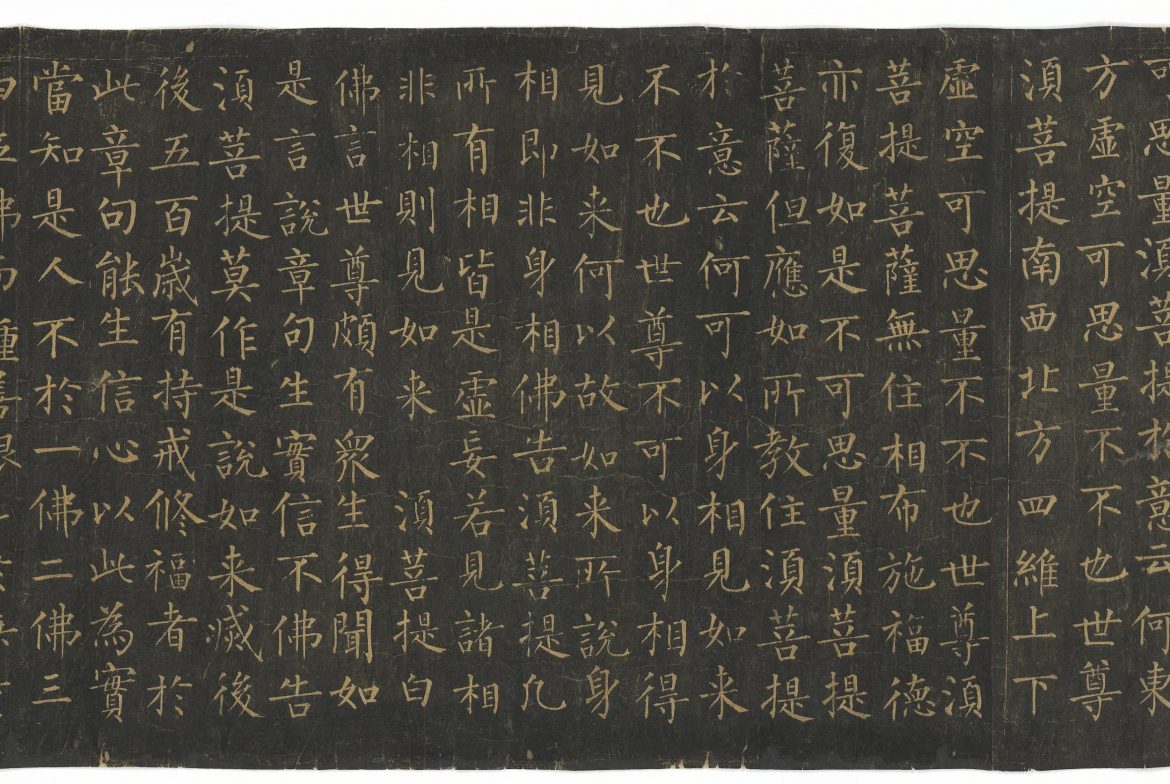 可思量須菩提於意云何東
方虛空可思量不不也世尊
須菩提南西北方四維上下
虛空可思量不不也世尊須
菩提菩薩無住相布施福德
亦復如是不可思量須菩提
菩薩但應如所教住須菩提
於意云何可以身相見如来
不不也世尊不可以身相得
見如来何以故如来所說身
相即非身相佛告須菩提凡
所有相皆是虛妄若見諸相
非相則見如来 須菩提白
佛言世尊頗有眾生得聞如
是言說章句生實信不佛告
須菩提莫作是說如来滅後
後五百歲有持戒修福者於
此章句能生信心以此為實
當知是人不於一佛二佛三
四五佛而種善根